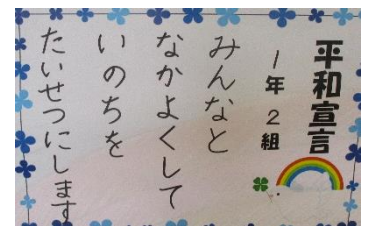 平和宣言
1年2組
みんなと
なかよくして
いのちを
たいせつにします